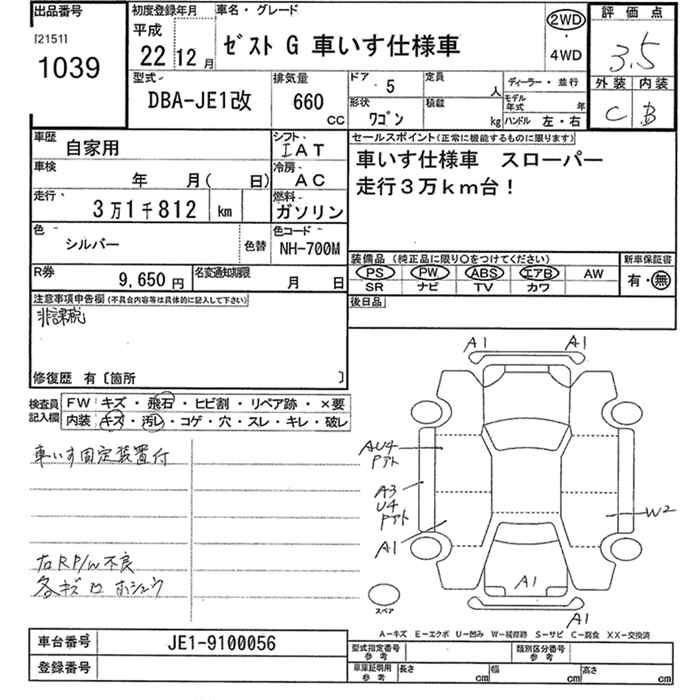 出品番号 初度登録年月 車名・グレード 評価点
[2151] 平成 2WD
1039 22 12月 ｾﾞｽﾄ G 車いす仕様車 ・ 3.5
4WD
型式 排気量 ドア 5 定員 人 ディーラー・並行 外装 内装
DBA-JE1改 660 cc 形状 ﾜｺﾞﾝ 積載 kg モデル年式 年 C B
ハンドル 左・右
車歴 自家用 シフト IAT セールスポイント(正常に機能するものに限ります)
車検 年 月( 日) 冷房 AC 車いす仕様車 スローパー
走行 3万1千812 km 燃料 ガソリン 走行3万km台！
色 シルバー 色替 色コード NH-700M
装備品 (純正品に限り○をつけてください) 新車保証書
R券 9,650円 名変通知期限 月 日 PS PW ABS エアB AW 有・無
SR ナビ TV カワ
注意事項申告欄(不具合内容等は具体的に記入して下さい) 後日品
非課税
修復歴 有〔箇所 〕
検査員記入欄 FW キズ・飛石・ヒビ割・リペア跡・×要
内装 キズ・汚レ・コゲ・穴・スレ・キレ・破レ
車いす固定装置付
A1 A1
AU4
Pアト
A3
U4
Pアト
W2
A1
右RP/w不良
各キズロ ホシュウ
A1
A1
スペア
A－キズ E－エクボ U－凹み W－補修跡 S－サビ C－腐食 XX－交換済
車台番号 JE1-9100056 型式指定番号参考 類別区分番号参考
登録番号 車庫証明用参考 長さ cm 幅 cm 高さ cm